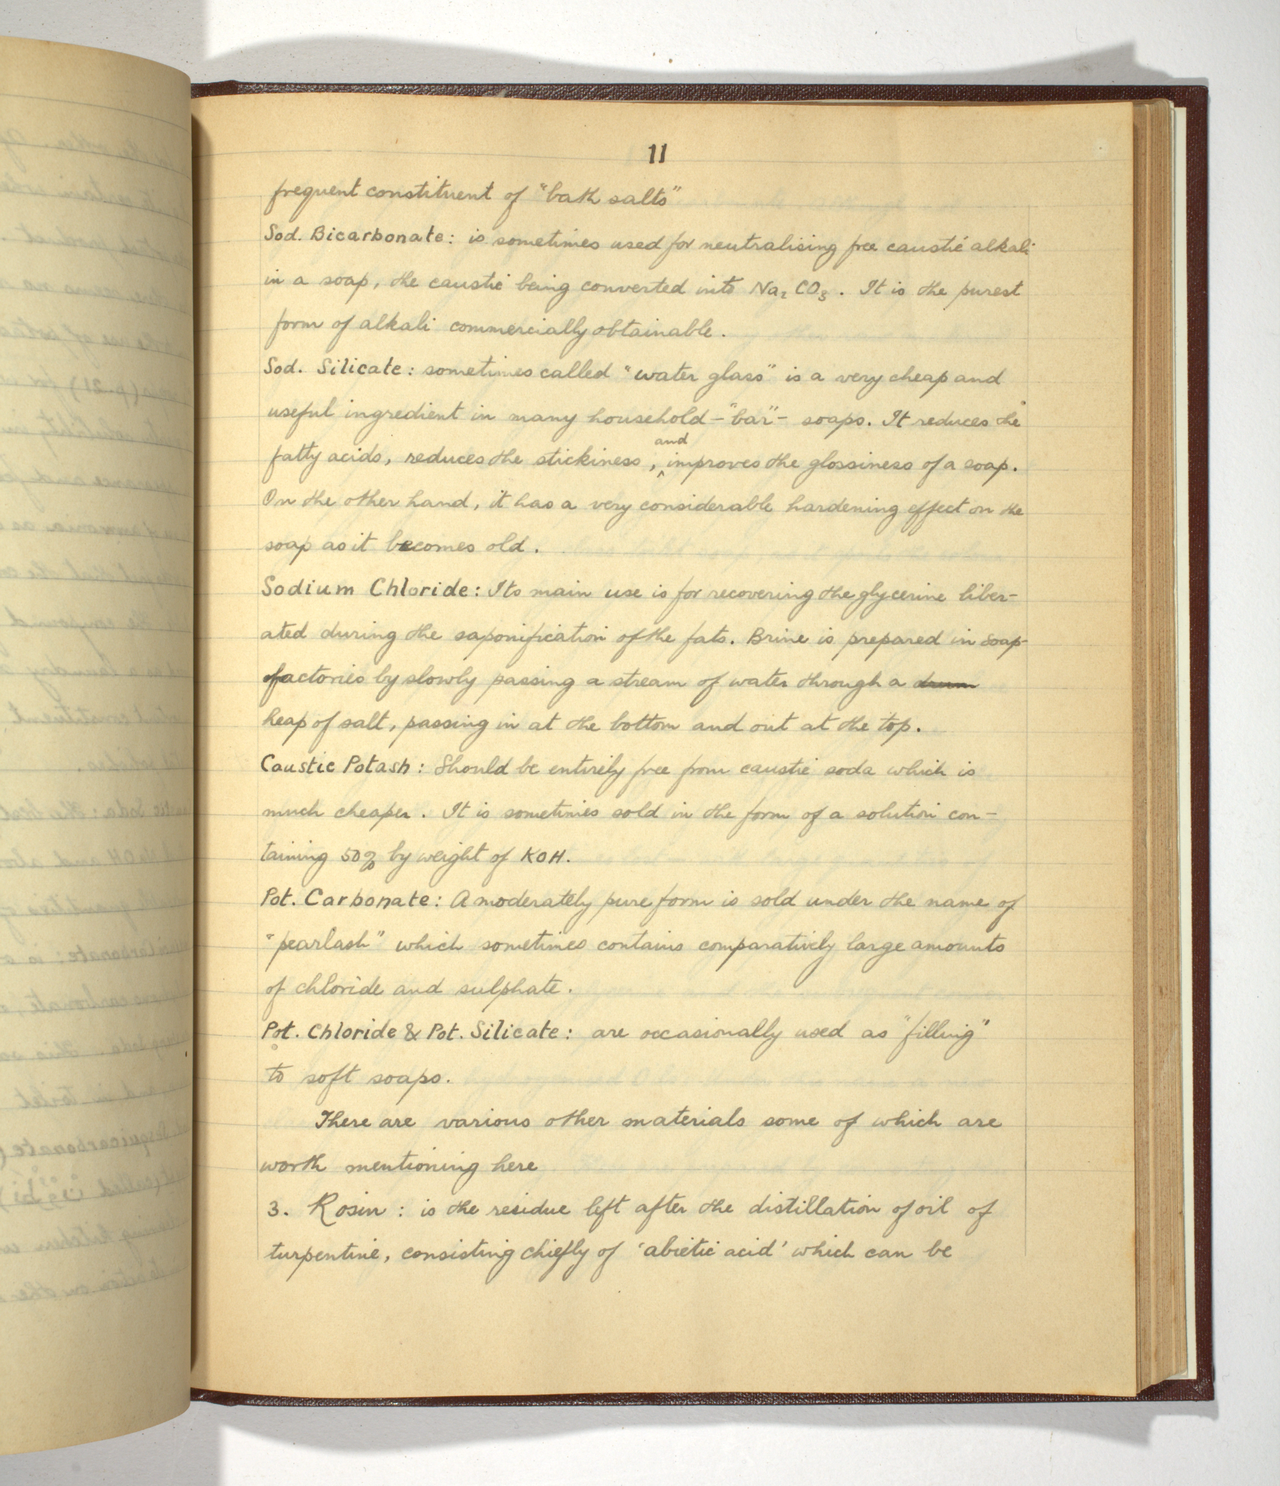 11
frequent constituent of "bath salts"
Sod. Bicarbonate: is sometimes used for neutralising free caustic alkali
in a soap, the caustic being converted into Na₂CO₃. It is the purest
form of alkali commercially obtainable.
Sod. Silicate: sometimes called "water glass" is a very cheap and
useful ingredient in many household-"bar"- soaps. It reduces the
fatty acids, reduces the stickiness, and improves the glossiness of a soap.
On the other hand, it has a very considerable hardening effect on the
soap as it becomes old.
Sodium Chloride: Its main use is for recovering the glycerine liber-
ated during the saponification of the fats. Brine is prepared in soap-
factories by slowly passing a stream of water through a drum
heap of salt, passing in at the bottom and out at the top.
Caustic Potash: Should be entirely free from caustic soda which is
much cheaper. It is sometimes sold in the form of a solution con-
taining 50% by weight of KOH.
Pot. Carbonate: A moderately pure form is sold under the name of
"pearlash" which sometimes contains comparatively large amounts
of chloride and sulphate.
Pot. Chloride & Pot. Silicate: are occasionally used as "filling"
to soft soaps.
There are various other materials some of which are
worth mentioning here
3. Rosin: is the residue left after the distillation of oil of
turpentine, consisting chiefly of 'abietic acid' which can be